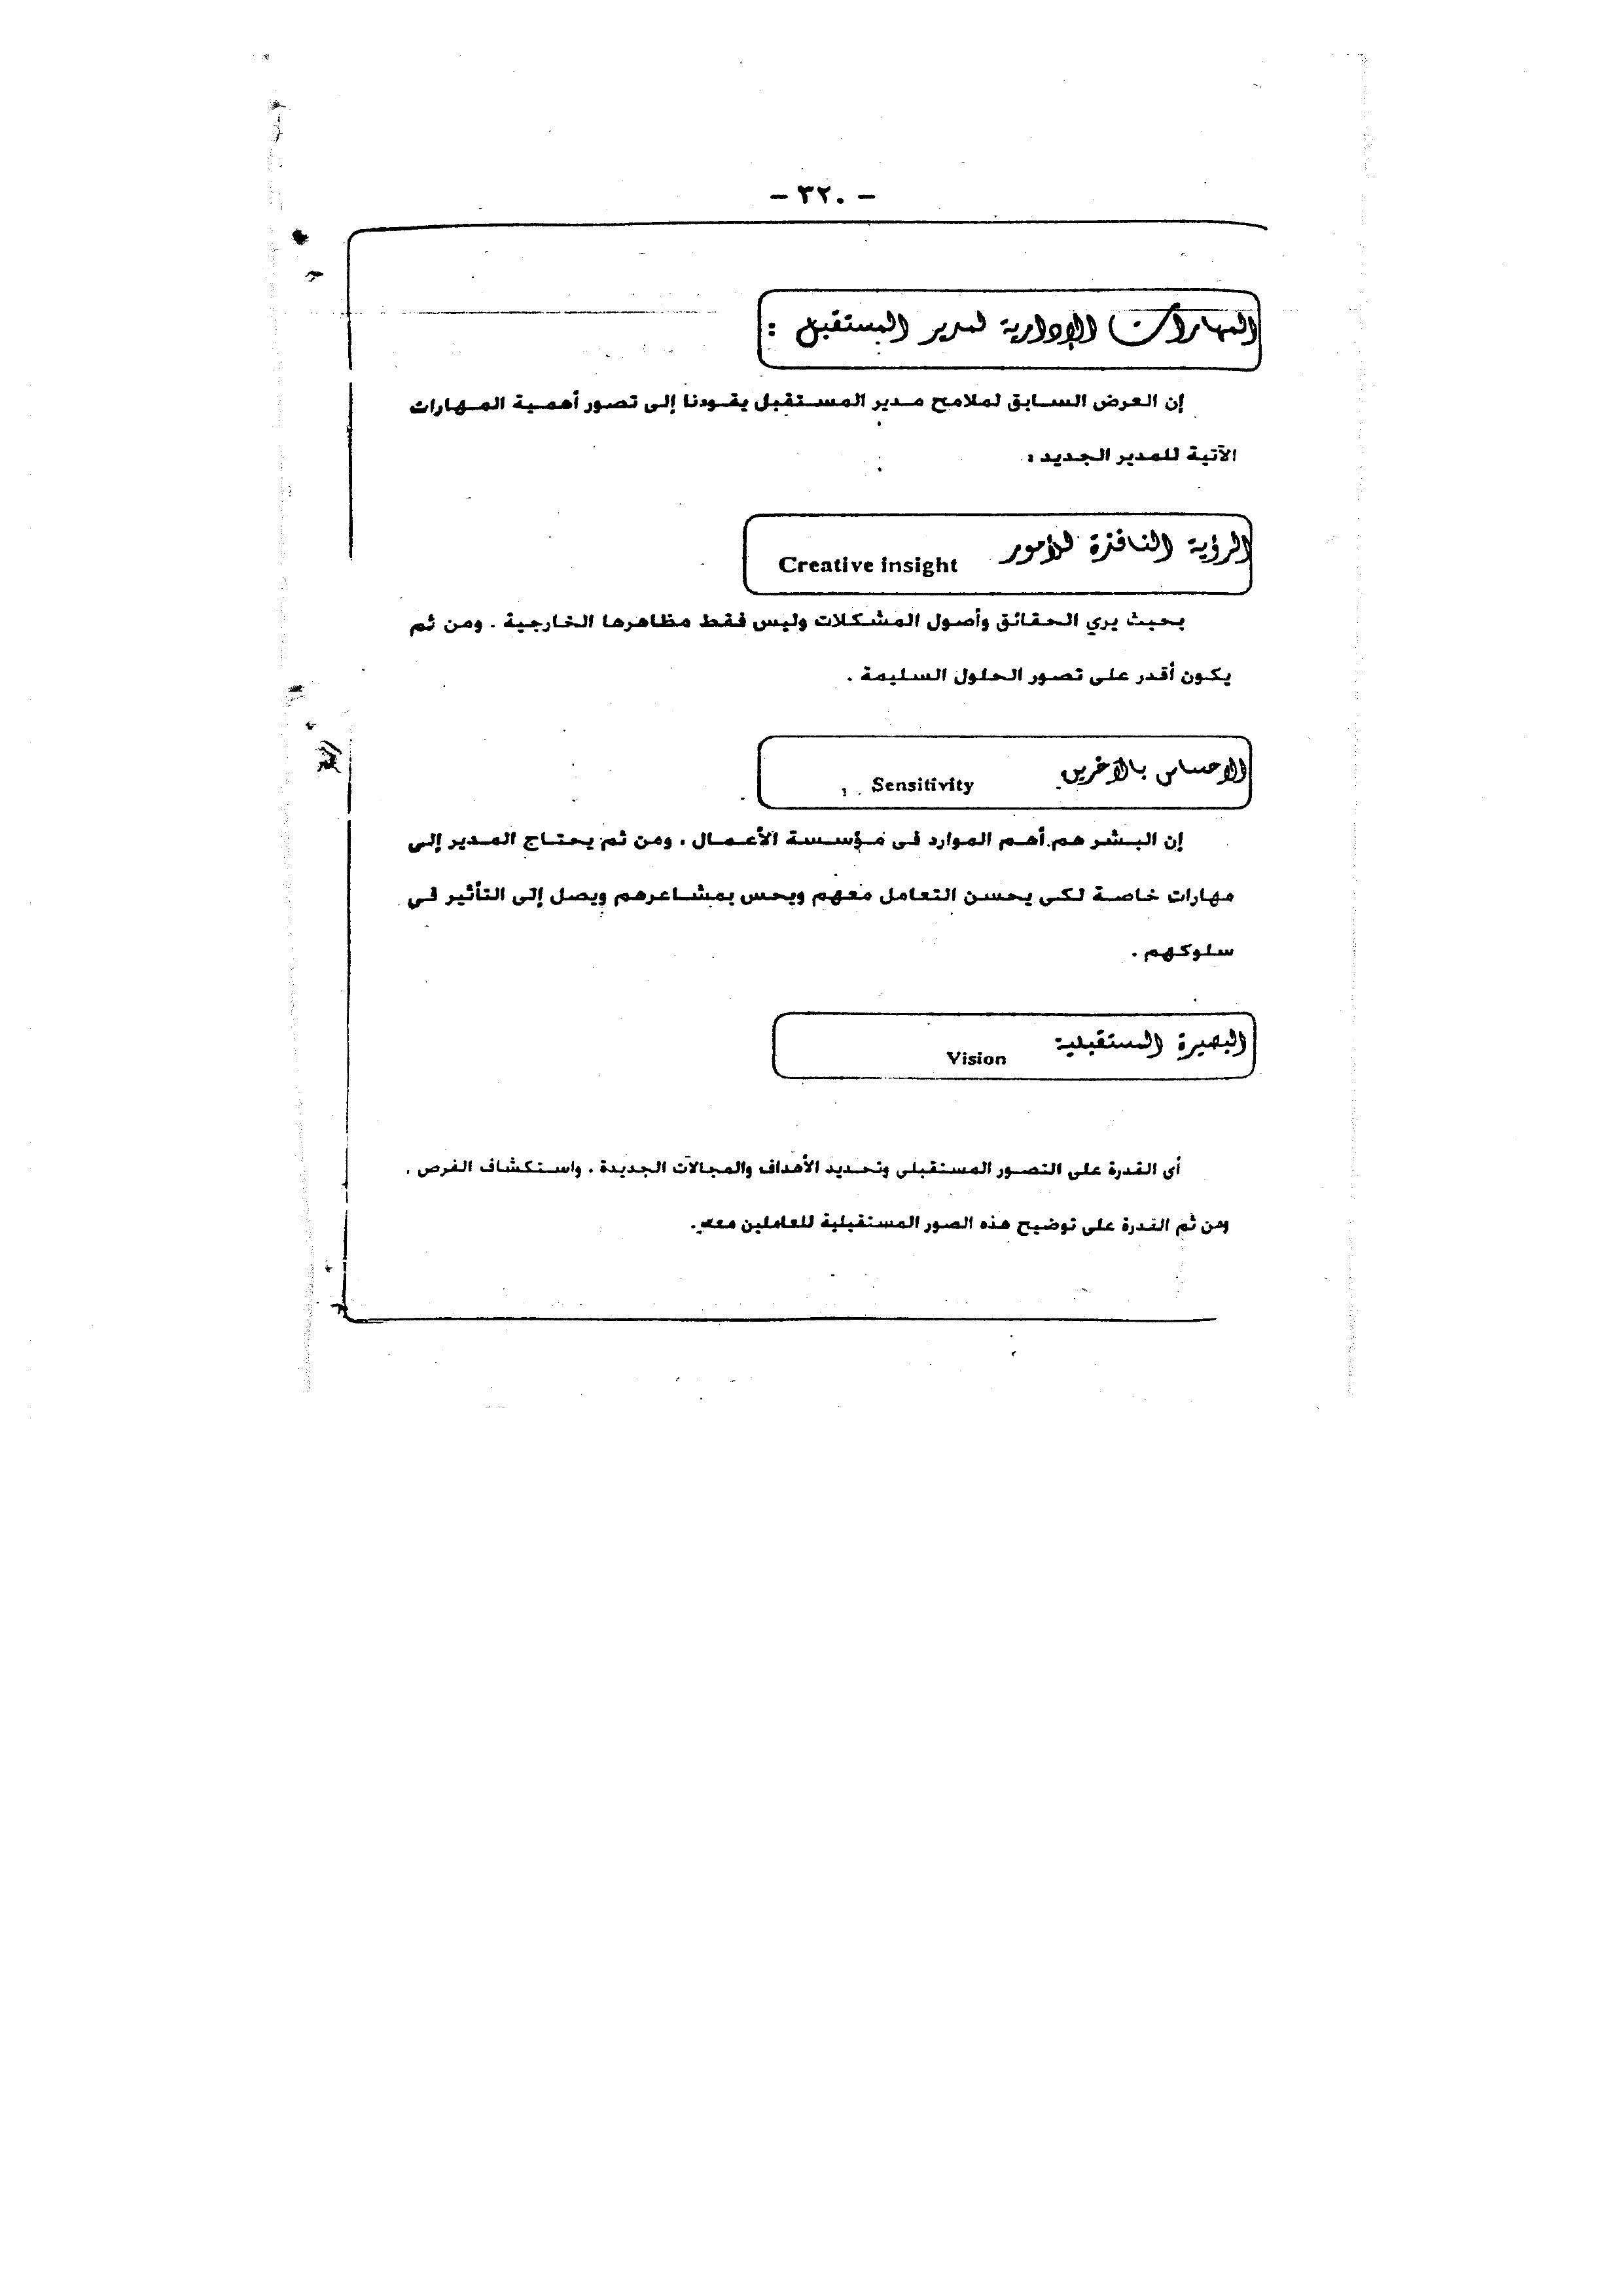 - ٣٢٠ -
المهارات الإدارية لمدير المستقبل :
إن العرض السابق لملامح مدير المستقبل يقودنا إلى تصور أهمية المهارات
الآتية للمدير الجديد :
الرؤية النافذة للأمور Creative insight
بحيث يري الحقائق وأصول المشكلات وليس فقط مظاهرها الخارجية . ومن ثم
يكون أقدر على تصور الحلول السليمة .
الاحساس بالآخرين Sensitivity :
إن البشر هم أهم الموارد فى مؤسسة الأعمال ، ومن ثم يحتاج المدير إلى
مهارات خاصة لكى يحسن التعامل معهم ويحس بمشاعرهم ويصل إلى التأثير فى
سلوكهم .
البصيرة المستقبلية Vision
أى القدرة على التصور المستقبلى وتحديد الأهداف والمجالات الجديدة ، واستكشاف الفرص ،
ومن ثم القدرة على توضيح هذه الصور المستقبلية للعاملين معه .